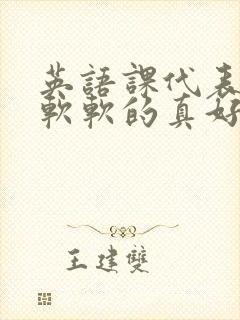 英語課代表
軟軟的真好
王建雙